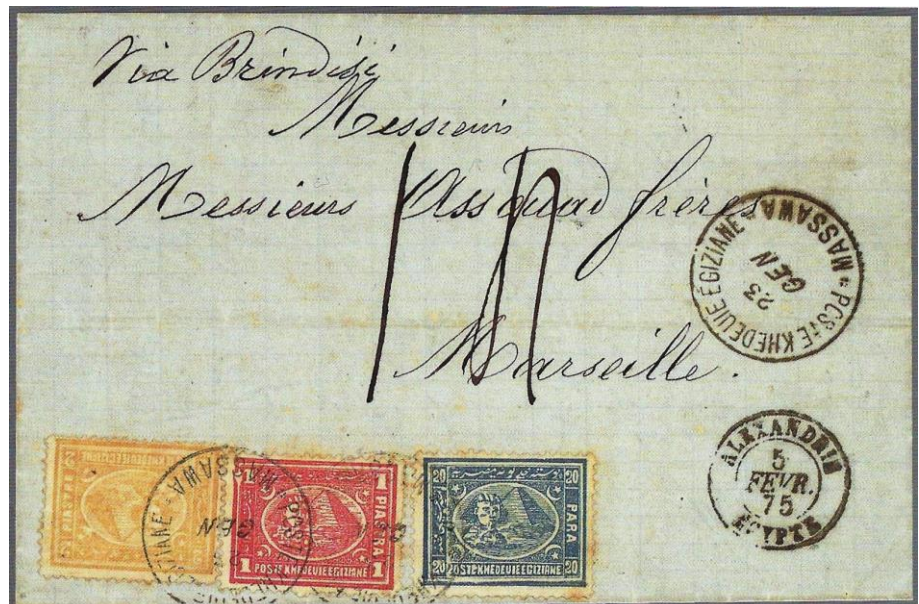 Via Brindisi
Messieurs
Messieurs Assouad frères
Marseille.
POSTE KHEDEUIE EGIZIANE
MASSAWA
23
GEN
ALEXANDRIE
5
FEVR.
75
EGYPTE
2
2
MASSAWA
GEN
1 PIASTRA 1
POSTE KHEDEUIE EGIZIANE
20 PARA 20
20 POSTE KHEDEUIE EGIZIANE 20